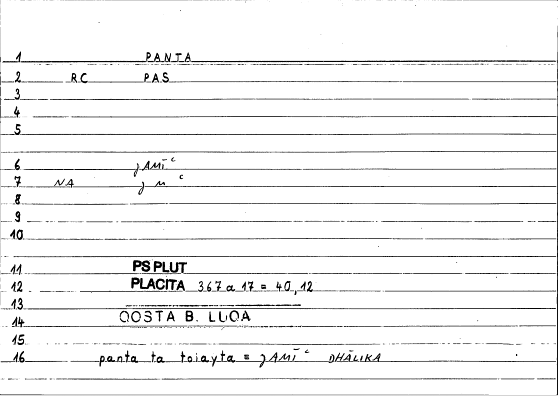 1 PANTA
2 RC PAS
3
4
5
6 ʒAMĪᶜ
7 NA ʒ M ᶜ
8
9
10
11 PS PLUT
12 PLACITA 367 a 17 = 40,12
13
14 QOSTA B. LUQA
15
16 panta ta toiayta = ʒAMĪᶜ DHĀLIKA